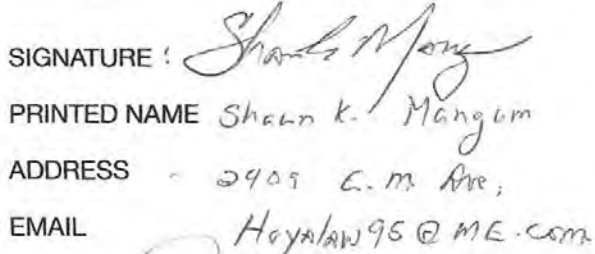 SIGNATURE : Shawn K Mang
PRINTED NAME Shawn K. Mangum
ADDRESS 2909 E. M. Ave,
EMAIL Hoyalaw95@ME.com